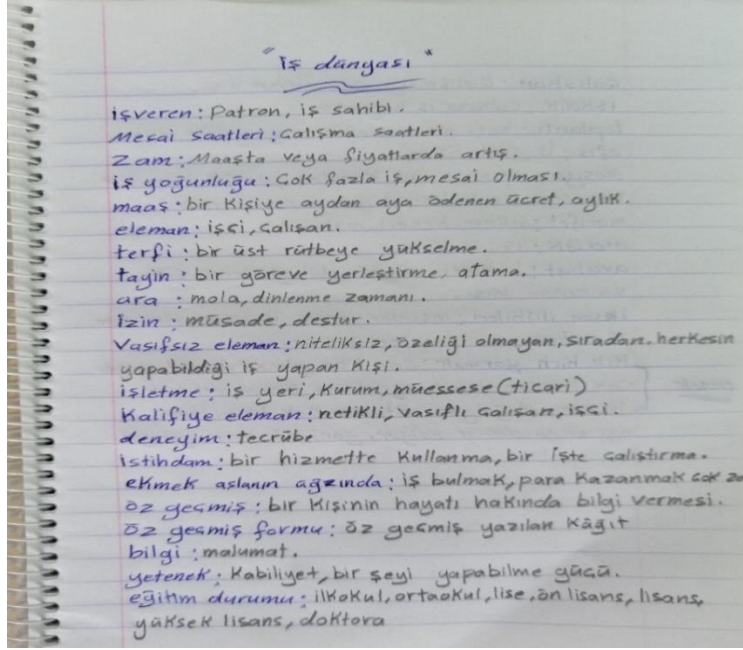 "İş dünyası"
işveren: Patron, iş sahibi.
Mesai saatleri: Çalışma saatleri.
Zam: Maaşta veya fiyatlarda artış.
iş yoğunluğu: Çok fazla iş, mesai olması.
maaş: bir kişiye aydan aya ödenen ücret, aylık.
eleman: işçi, çalışan.
terfi: bir üst rütbeye yükselme.
tayin: bir göreve yerleştirme, atama.
ara: mola, dinlenme zamanı.
izin: müsade, destur.
Vasıfsız eleman: niteliksiz, özeliği olmayan, sıradan, herkesin
yapabildiği iş yapan kişi.
işletme: iş yeri, kurum, müessese (ticari)
Kalifiye eleman: netikli, vasıflı çalışan, işçi.
deneyim: tecrübe
istihdam: bir hizmette kullanma, bir işte çalıştırma.
ekmek aslanın ağzında: iş bulmak, para kazanmak çok
öz geçmiş: bir kişinin hayatı hakkında bilgi vermesi.
öz geçmiş formu: öz geçmiş yazılan kâğıt
bilgi: malumat.
yetenek: kabiliyet, bir şeyi yapabilme gücü.
eğitim durumu: ilkokul, ortaokul, lise, ön lisans, lisans,
yüksek lisans, doktora